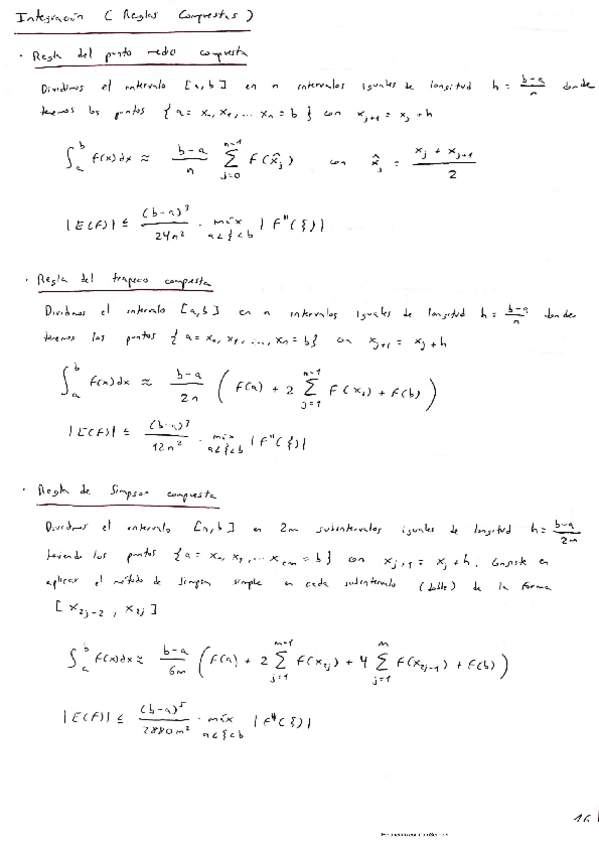 Integración (Reglas Compuestas)
· Regla del punto medio compuesta
Dividimos el intervalo [a,b] en n intervalos iguales de longitud h = (b-a)/n donde
tenemos los puntos {a = x₀, x₁, ... xₙ = b} con xⱼ₊₁ = xⱼ + h
∫ₐᵇ f(x)dx ≈ (b-a)/n ∑_{j=0}^{n-1} f(x̂ⱼ) con x̂ⱼ = (xⱼ + xⱼ₊₁)/2
|E(f)| ≤ (b-a)³/24n² · máx_{a<ξ<b} |f''(ξ)|
· Regla del trapecio compuesta
Dividimos el intervalo [a,b] en n intervalos iguales de longitud h = (b-a)/n donde
tenemos los puntos {a = x₀, x₁, ..., xₙ = b} con xⱼ₊₁ = xⱼ + h
∫ₐᵇ f(x)dx ≈ (b-a)/2n (f(a) + 2 ∑_{j=1}^{n-1} f(xⱼ) + f(b))
|E(f)| ≤ (b-a)³/12n² · máx_{a<ξ<b} |f''(ξ)|
· Regla de Simpson compuesta
Dividimos el intervalo [a,b] en 2m subintervalos iguales de longitud h = (b-a)/2m
teniendo los puntos {a = x₀, x₁, ... x₂ₘ = b} con xⱼ₊₁ = xⱼ + h. Consiste en
aplicar el método de Simpson simple en cada subintervalo (doble) de la forma
[x₂ⱼ₋₂, x₂ⱼ]
∫ₐᵇ f(x)dx ≈ (b-a)/6m (f(a) + 2 ∑_{j=1}^{m-1} f(x₂ⱼ) + 4 ∑_{j=1}^{m} f(x₂ⱼ₋₁) + f(b))
|E(f)| ≤ (b-a)⁵/2880m² · máx_{a<ξ<b} |f⁴(ξ)|
16